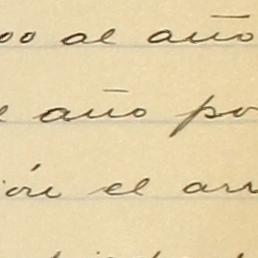 00 al año
año po
ión el arr